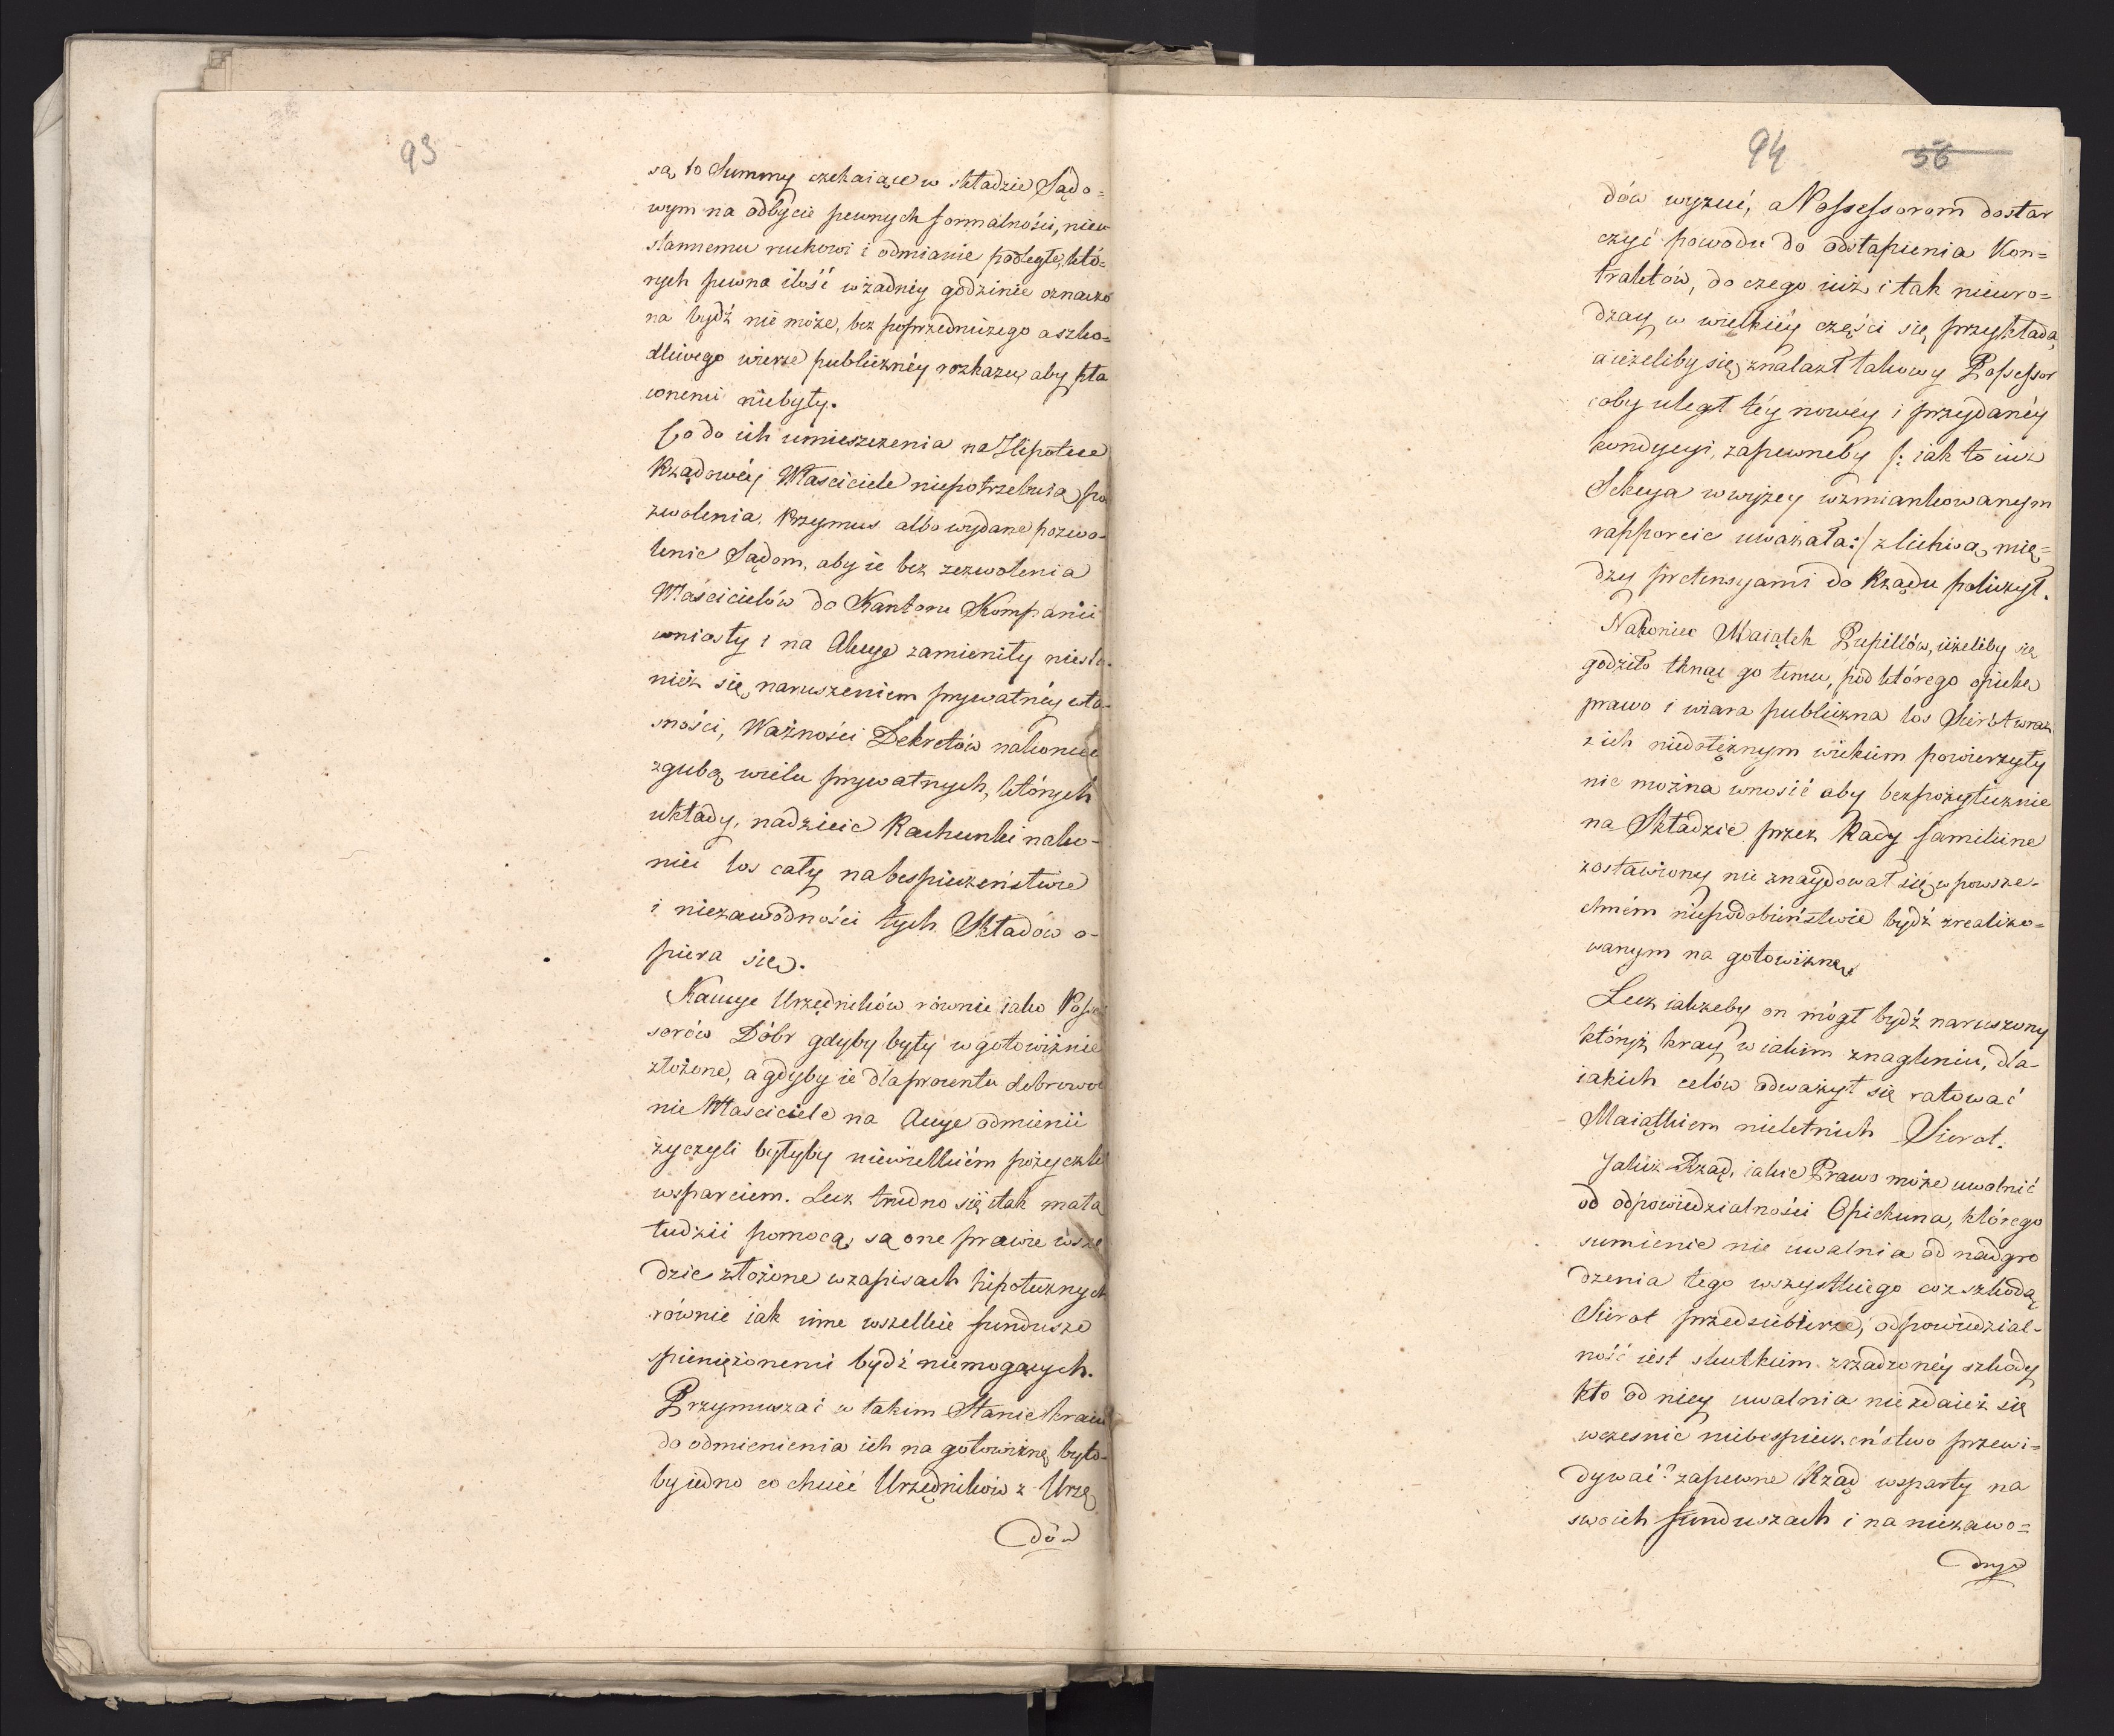 93
są to Summy czekaiące w składzie Sądo=
wym na odbycie pewnych formalności, nieu
stannemu ruchowi i odmianie podległe, któ=
rych pewna ilość w żadnéy godzinie oznaczo
na bydź nie może, bez poprzedniczego a szko=
dliwego wierze publicznéy rozkazu, aby pła
conemi niebyły.
Co do ich umieszczenia na Hipotece
Rządowéy Właściciele niepotrzebuią po
zwolenia. Przymus albo wydane pozwo-
lenie Sądom, aby ie bez zezwolenia
Właścicielów do Kantoru Kompanii
wniosły i na Akcye zamieniły niesta-
nież się naruszeniem prywatnéy wła-
sności, Ważności Dekretów nakoniec
zgubą wielu prywatnych, których
układy, nadzieie Rachunki nako-
niec los cały na bespieczeństwie
i niezawodności tych Składów o-
piera się.
Kaucye Urzędników równie iako Posse
sorów Dóbr gdyby były w gotowiźnie
złożone, a gdyby ie dla procentu dobrowol
nie Właściciele na Akcye odmienić
życzyli byłyby niewielkiém pożyczki
wsparciem. Lecz trudno się i tak mała
łudzić pomocą, są one prawie wszę
dzie złożone w zapisach hipotecznych
równie iak inne wszelkie fundusze
spieniężonemi bydź niemogących.
Przymuszać w takim Stanie kraiu
do odmienienia ich na gotowiznę było-
by iedno co chcieć Urzędników z Urzę
dów
94 56
dów wyzuć, a Possessorom dostar
czyć powodu do odstąpienia Kon=
traktów, do czego iuż i tak nieuro=
dzay w wielkiéy części się przykłada,
a ieżeliby się znalazł takowy Possessor
coby uległ téy nowéy i przydanéy
kondycyi, zapewneby /: iak to iuż
Sekcya w wyżey wzmiankowanym
rapporcie uważała :/ z lichwą mię=
dzy pretensyami do Rządu policzył.
Nakoniec Maiątek Pupillów, ieżeliby się
godziło tknąć go temu, pod którego opiekę
prawo i wiara publiczna los Sierot wraz
z ich niedołężnym wiekiem powierzyły
nie można wnosić aby bezpożytecznie
na Składzie przez Rady familiine
zostawiony nie znaydował się w powsze-
chném niepodobieństwie bydź zrealizo=
wanym na gotowiznę.
Lecz iakżeby on mógł bydź naruszony
któryż kray w iakim znagleniu, dla-
iakich celów odważył się ratować
Maiątkiem nieletnich Sierot.
Jakiż Rząd, iakie Prawo może uwolnić
od odpowiedzialności Opiekuna, którego
sumienie nie uwalnia od nadgro
dzenia tego wszystkiego co z szkodą
Sierot przedsiębierze, odpowiedzial-
ność iest skutkiem zrządzonéy szkody
kto od niey uwalnia niezdaież się
wcześnie niebespieczeństwo przewi=
dywać? zapewne Rząd wsparty na
swoich funduszach i na niezawo=
dnych